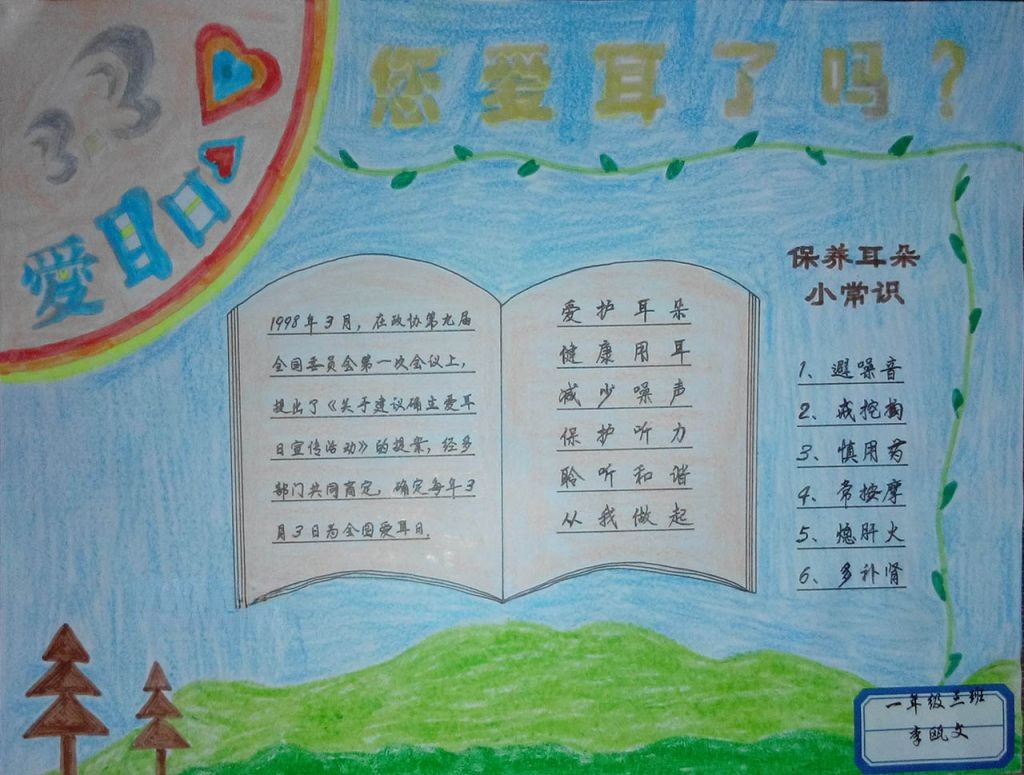 3.3
愛耳日
您爱耳了吗?
1998年3月,在政协第九届
全国委员会第一次会议上,
提出了《关于建议确立爱耳
日宣传活动》的提案,经多
部门共同商定,确定每年3
月3日为全国爱耳日.
爱护耳朵
健康用耳
减少噪声
保护听力
聆听和谐
从我做起
保养耳朵
小常识
1、避噪音
2、戒挖掏
3、慎用药
4、常按摩
5、熄肝火
6、多补肾
一年级三班
李瓯文